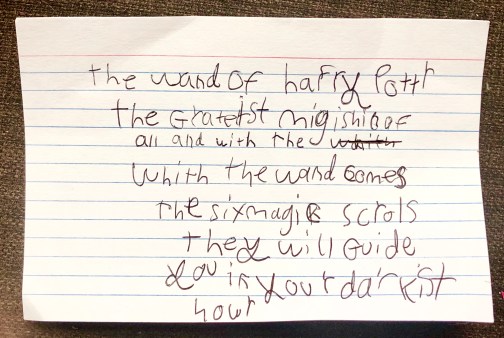 the wand of harry Pottr
the Gratetst migishin of
all and with the
whith the wand comes
the six magic scrols
they will Guide
you in your darkist
hour